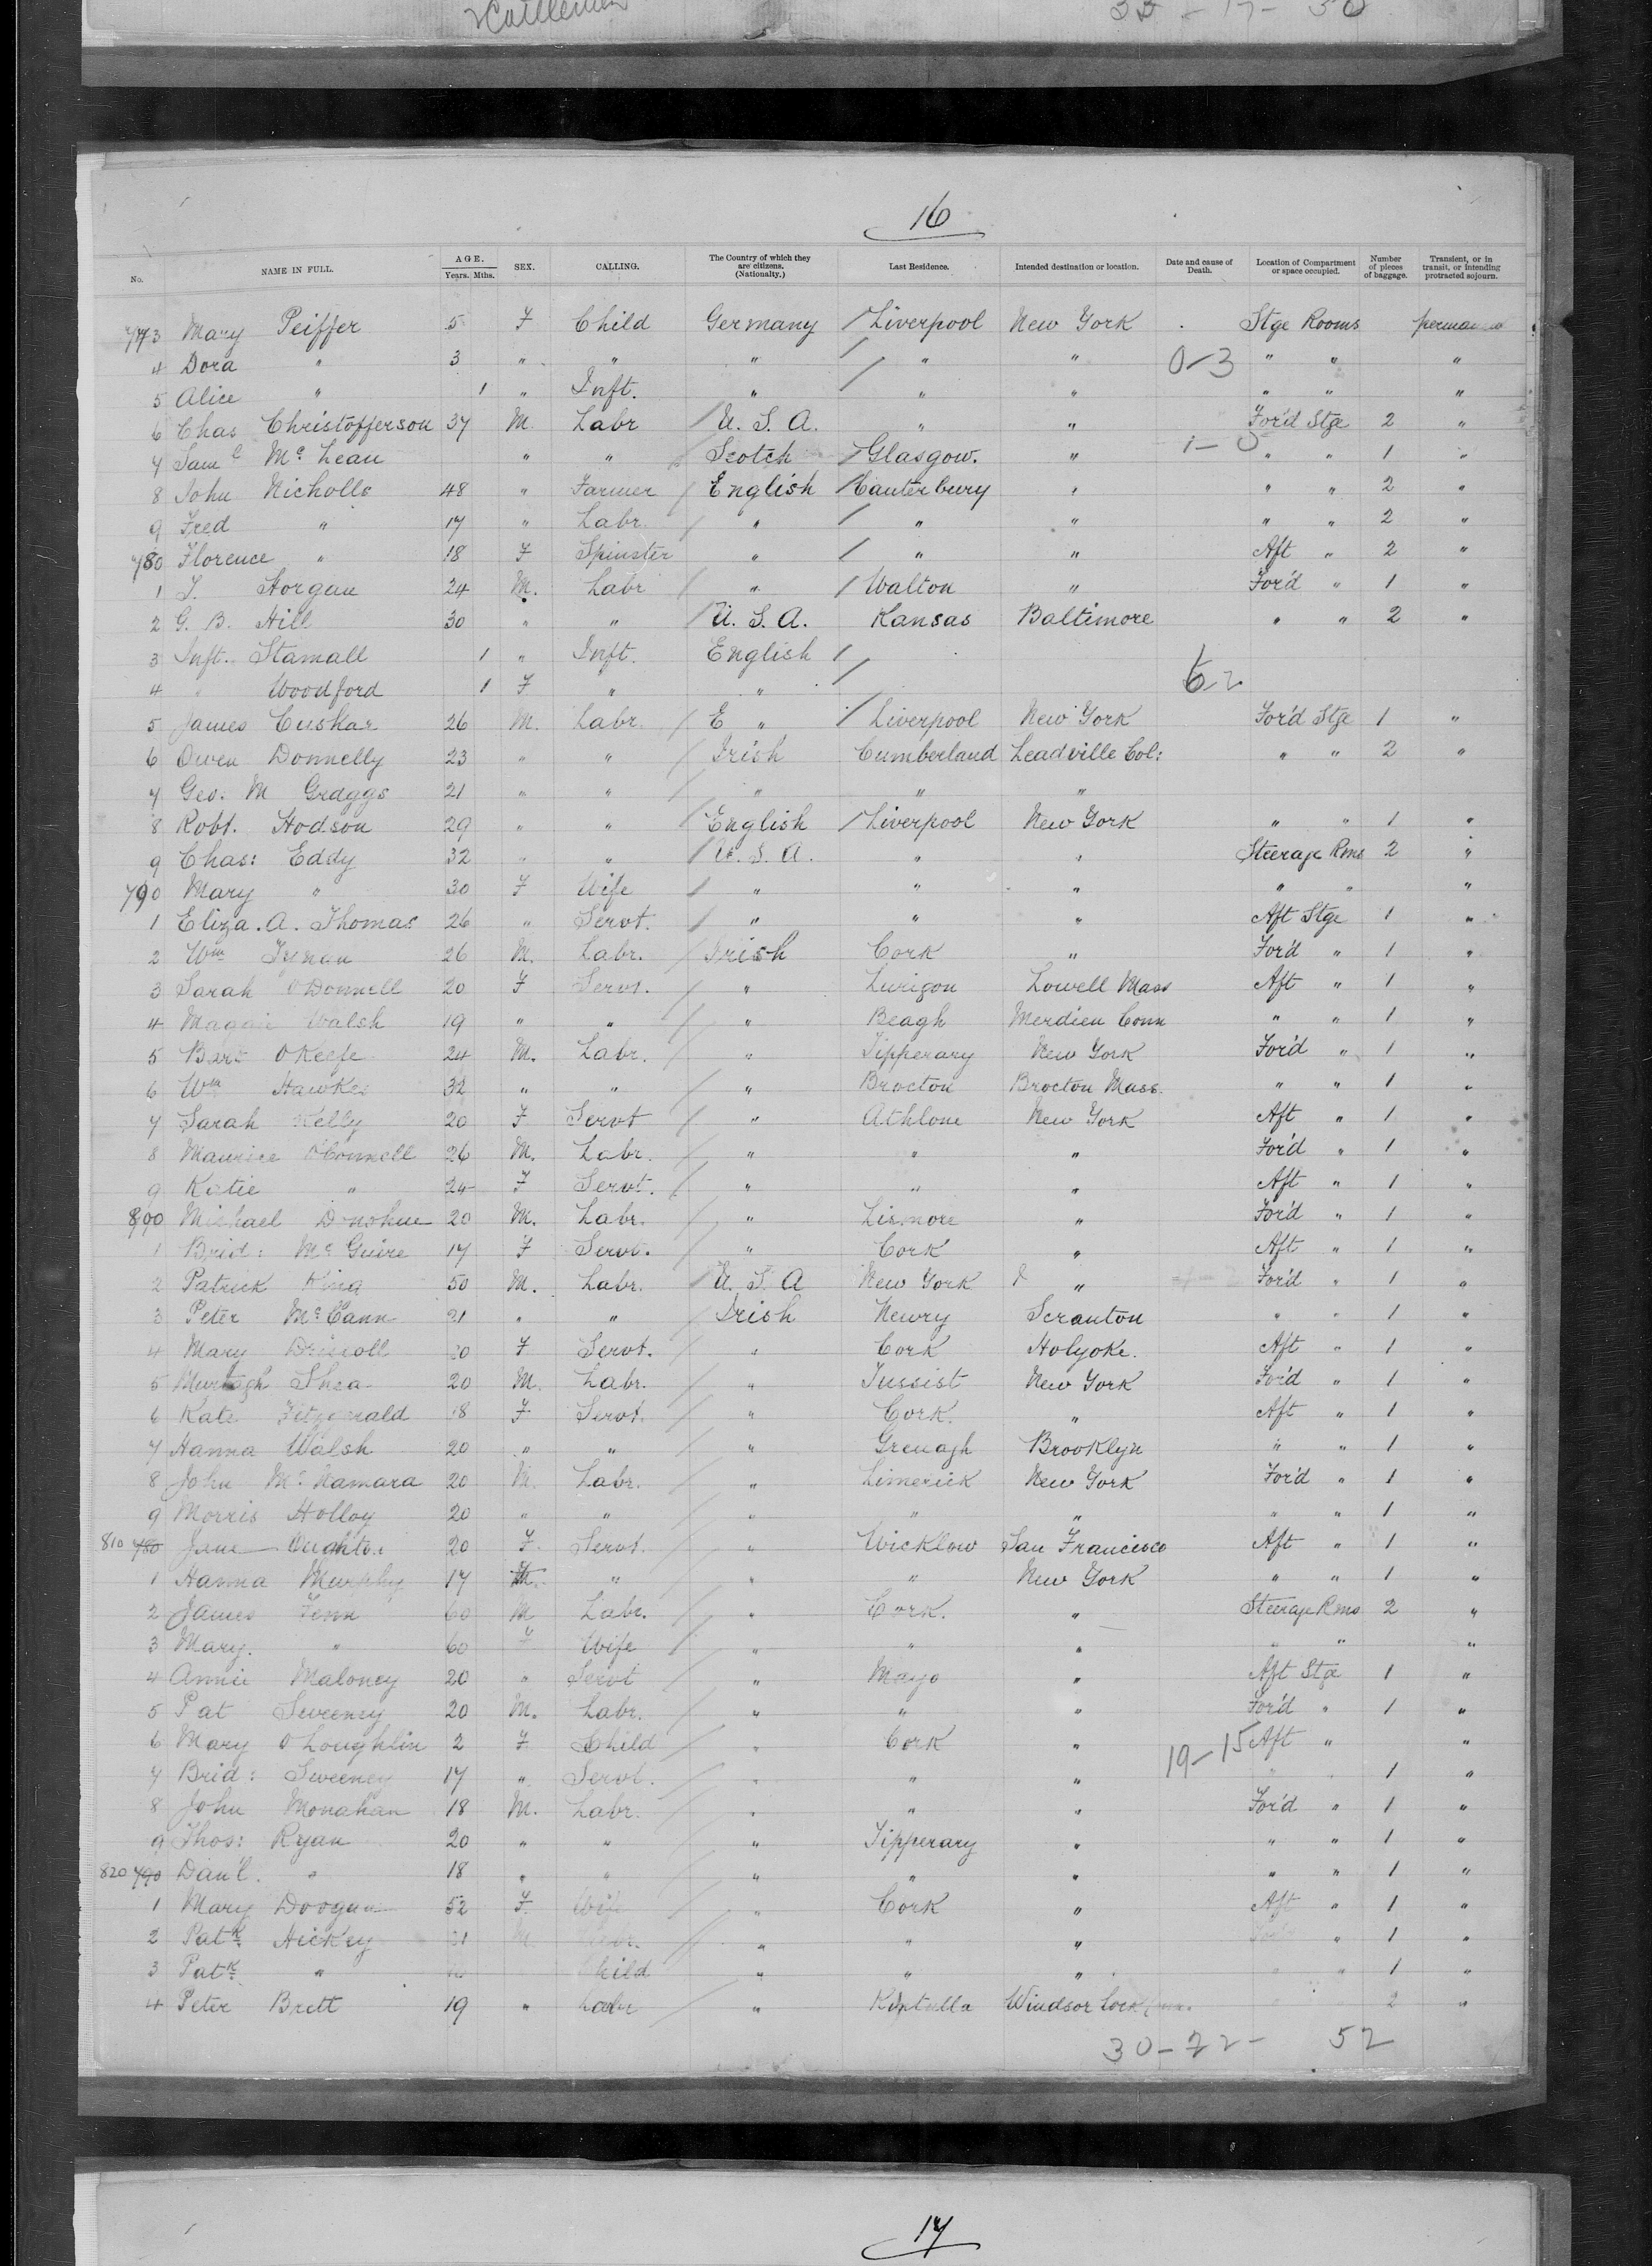 Cattlemen 33 - 17 - 50
16
No. NAME IN FULL. AGE. Years. Mths. SEX. CALLING. The Country of which they are citizens. (Nationalty.) Last Residence. Intended destination or location. Date and cause of Death. Location of Compartment or space occupied. Number of pieces of baggage. Transient, or in transit, or intending protracted sojourn.
773 Mary Peiffer 5 F Child Germany / Liverpool New York Stge Rooms
4 Dora " 3 " " " / " " 0-3 " " "
5 Alice " 1 " Inft. " / " " " " "
6 Chas Christofferson 37 M. Labr / U. S. A. " " For'd Stge 2 "
7 Saml Mc Lean " " Scotch / Glasgow. " 1-0 " " 1 "
8 John Nicholls 48 " Farmer / English / Canterbury " " " 2 "
9 Fred " 17 " Labr. / " / " " " " 2 "
780 Florence " 18 F Spinster " / " " Aft " 2 "
1 J. Horgan 24 M. Labr / " / Walton " For'd " 1 "
2 G. B. Hill 30 " " / U. S. A. Kansas Baltimore " " 2 "
3 Inft. Stamall 1 " Inft. English /
4 " Woodford 1 F " " / 6-2
5 James Cuskar 26 M. Labr. / E " / Liverpool New York For'd Stge 1 "
6 Owen Donnelly 23 " " / Irish Cumberland Leadville Col: " " 2 "
7 Geo: M Graggs 21 " " / " " "
8 Robt. Hodson 29 " " / English / Liverpool New York " " 1 "
9 Chas: Eddy 32 " " / U. S. A. " " Steerage Rms 2 "
790 Mary " 30 F Wife / " " " " " "
1 Eliza. A. Thomas 26 " Servt. / " " " Aft Stge 1 "
2 Wm Tynan 26 M. Labr. / Irish Cork " For'd " 1 "
3 Sarah O'Donnell 20 F Servt. / " Lurigon Lowell Mass Aft " 1 "
4 Maggie Walsh 19 " " / " Beagh Merdien Conn " " 1 "
5 Bart O'Keefe 24 M. Labr. / " Tipperary New York For'd " 1 "
6 Wm Hawkes 32 " " / " Brocton Brocton Mass. " " 1 "
7 Sarah Kelly 20 F Servt / " Athlone New York Aft " 1 "
8 Maurice O'Connell 26 M. Labr. / " " " For'd " 1 "
9 Katie " 24 F Servt. / " " " Aft " 1 "
800 Michael Donohue 20 M. Labr. / " Lismore " For'd " 1 "
1 Brid: Mc Guire 17 F Servt. / " Cork " Aft " 1 "
2 Patrick King 50 M. Labr. / U. S. A New York " For'd " 1 "
3 Peter McCann 21 " " / Irish Newry Scranton " " 1 "
4 Mary Driscoll 20 F Servt. / " Cork Holyoke. Aft " 1 "
5 Murtagh Shea 20 M. Labr. / " Tussist New York For'd " 1 "
6 Kate Fitzgerald 18 F Servt. / " Cork. " Aft " 1 "
7 Hanna Walsh 20 " " / " Grenagh Brooklyn " " 1 "
8 John Mc Namara 20 M. Labr. / " Limerick New York For'd " 1 "
9 Morris Holloy 20 " " / " " " " " 1 "
810 780 Jane 20 F. Servt. / " Wicklow San Francisco Aft " 1 "
1 Hanna Murphy 17 " / " " New York " " 1 "
2 James Fenn 60 M Labr. / " Cork. " Steerage Rms 2 "
3 Mary. " 60 F Wife / " " " " " "
4 Annie Maloney 20 " Servt / " Mayo " Aft Stge 1 "
5 Pat Sweeney 20 M. Labr. / " " " For'd " 1 "
6 Mary O'Loughlin 2 F Child / " Cork " 19-15 Aft " "
7 Brid: Sweeney 17 " Servt. / " " " " " 1 "
8 John Monahan 18 M. Labr. / " " " For'd " 1 "
9 Thos: Ryan 20 " " / " Tipperary " " " 1 "
820 790 Dan'l. " 18 " " / " " " " " 1 "
1 Mary Doogan 52 F Wife / " Cork " Aft " 1 "
2 Patk Hickey M. / " " " " 1 "
3 Patk " Child " " " " " 1 "
4 Peter Brett 19 " Labr / " Windsor Lock 2 "
30-22- 52
17